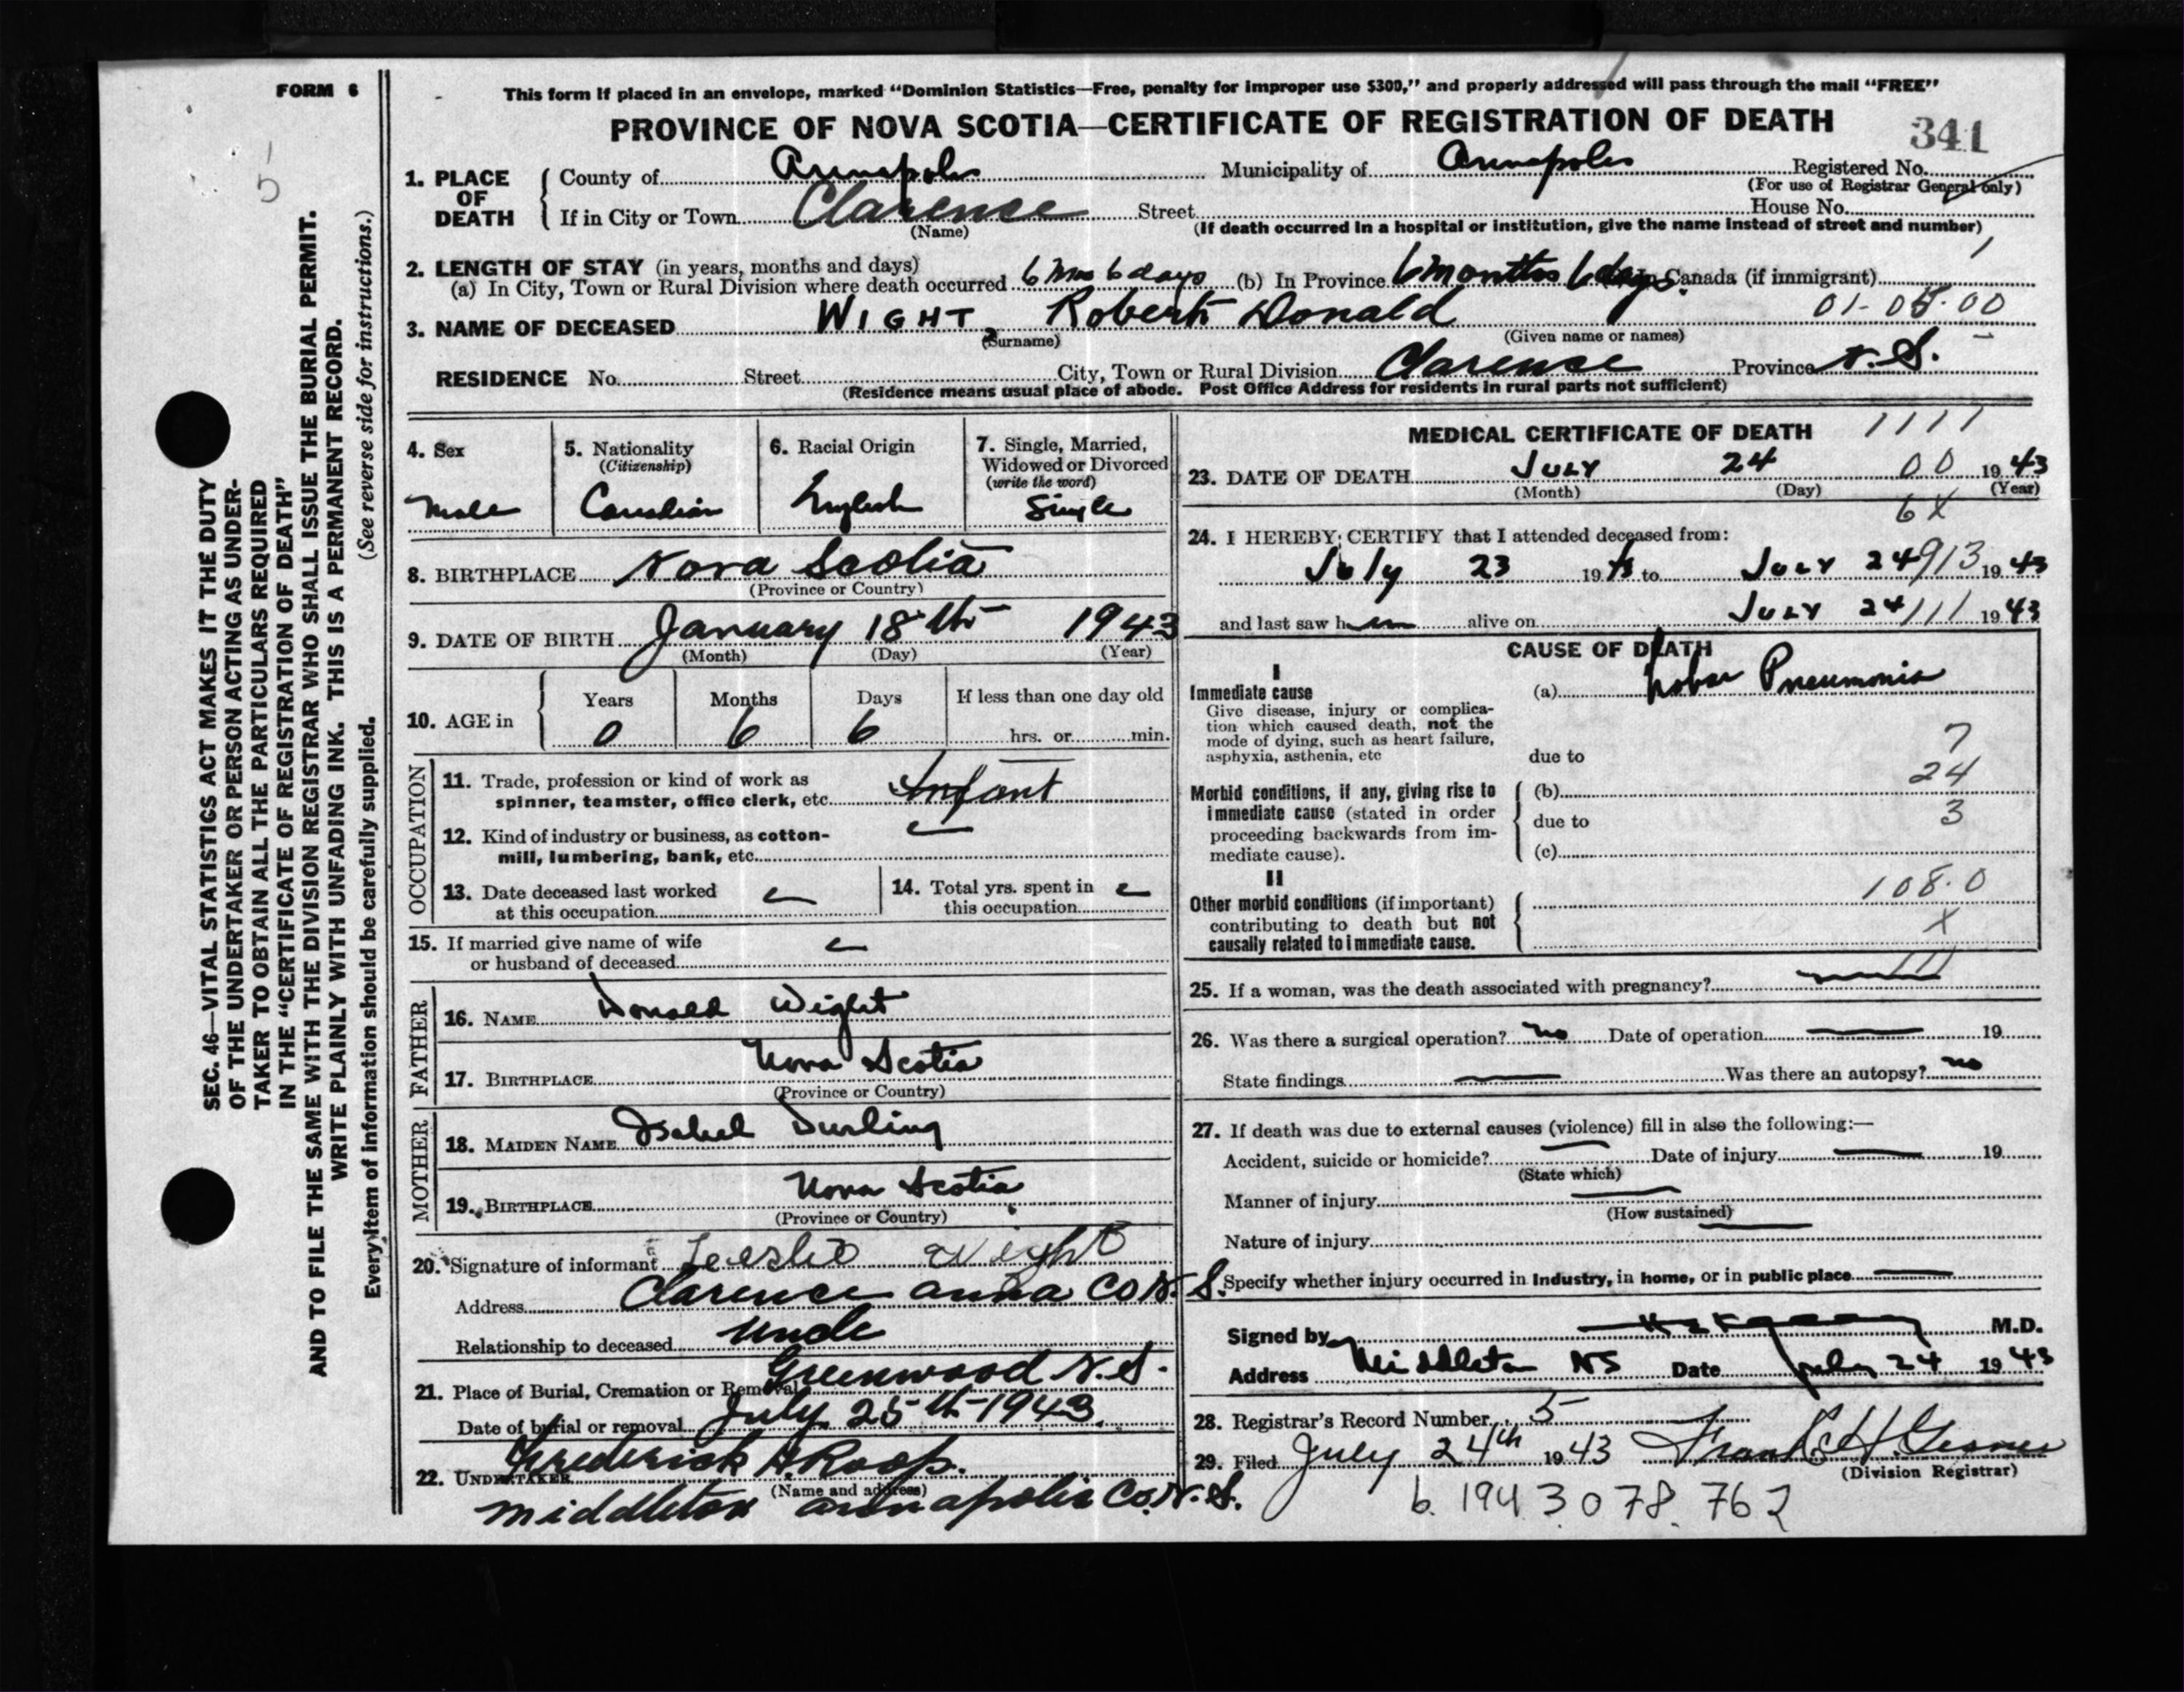 FORM 6
5
This form if placed in an envelope, marked "Dominion Statistics—Free, penalty for improper use $300," and properly addressed will pass through the mail "FREE"
PROVINCE OF NOVA SCOTIA—CERTIFICATE OF REGISTRATION OF DEATH
341
1. PLACE OF DEATH
County of Annapolis Municipality of Annapolis Registered No.
(For use of Registrar General only)
If in City or Town Clarence Street House No.
(Name) (If death occurred in a hospital or institution, give the name instead of street and number)
2. LENGTH OF STAY (in years, months and days)
(a) In City, Town or Rural Division where death occurred 6 mos 6 days (b) In Province 6 months 6 days Canada (if immigrant)
01-05-00
3. NAME OF DECEASED WIGHT, Robert Donald
(Surname) (Given name or names)
RESIDENCE No. Street City, Town or Rural Division Clarence Province N.S.
(Residence means usual place of abode. Post Office Address for residents in rural parts not sufficient)
4. Sex
Male
5. Nationality
(Citizenship)
Canadian
6. Racial Origin
English
7. Single, Married, Widowed or Divorced
(write the word)
Single
8. BIRTHPLACE Nova Scotia
(Province or Country)
9. DATE OF BIRTH January 18th 1943
(Month) (Day) (Year)
10. AGE in
Years Months Days If less than one day old
0 6 6 hrs. or min.
OCCUPATION
11. Trade, profession or kind of work as
spinner, teamster, office clerk, etc. Infant
12. Kind of industry or business, as cotton-
mill, lumbering, bank, etc.
13. Date deceased last worked
at this occupation
14. Total yrs. spent in
this occupation
15. If married give name of wife
or husband of deceased
FATHER
16. NAME Donald Wight
17. BIRTHPLACE Nova Scotia
(Province or Country)
MOTHER
18. MAIDEN NAME Isabel Durling
19. BIRTHPLACE Nova Scotia
(Province or Country)
20. Signature of informant Leeslie Wight
Address Clarence Anna Co N.S.
Relationship to deceased Uncle
21. Place of Burial, Cremation or Removal Greenwood N.S.
Date of burial or removal July 25th-1943.
22. UNDERTAKER Frederick A. Roop.
(Name and address)
Middleton Annapolis Co. N.S.
MEDICAL CERTIFICATE OF DEATH
1111
23. DATE OF DEATH JULY 24 00 1943
(Month) (Day) (Year)
6X
24. I HEREBY CERTIFY that I attended deceased from:
July 23 1943 to JULY 24 913 1943
and last saw him alive on JULY 24 111 1943
CAUSE OF DEATH
I
Immediate cause
Give disease, injury or complica-
tion which caused death, not the
mode of dying, such as heart failure,
asphyxia, asthenia, etc
(a) Lobar Pneumonia
7
due to
24
Morbid conditions, if any, giving rise to
immediate cause (stated in order
proceeding backwards from im-
mediate cause).
(b)
due to
3
(c)
II
108.0
Other morbid conditions (if important)
contributing to death but not
causally related to immediate cause.
X
111
25. If a woman, was the death associated with pregnancy?
26. Was there a surgical operation? no Date of operation 19
State findings Was there an autopsy? no
27. If death was due to external causes (violence) fill in also the following:—
Accident, suicide or homicide? Date of injury 19
(State which)
Manner of injury
(How sustained)
Nature of injury
Specify whether injury occurred in Industry, in home, or in public place
Signed by M.D.
Address Middleton NS Date July 24 1943
28. Registrar's Record Number 5
29. Filed July 24th 1943 Frank H. Gesner
(Division Registrar)
b. 1943.078.762
SEC. 46—VITAL STATISTICS ACT MAKES IT THE DUTY
OF THE UNDERTAKER OR PERSON ACTING AS UNDER-
TAKER TO OBTAIN ALL THE PARTICULARS REQUIRED
IN THE "CERTIFICATE OF REGISTRATION OF DEATH"
AND TO FILE THE SAME WITH THE DIVISION REGISTRAR WHO SHALL ISSUE THE BURIAL PERMIT.
WRITE PLAINLY WITH UNFADING INK. THIS IS A PERMANENT RECORD.
Every item of information should be carefully supplied. (See reverse side for instructions.)